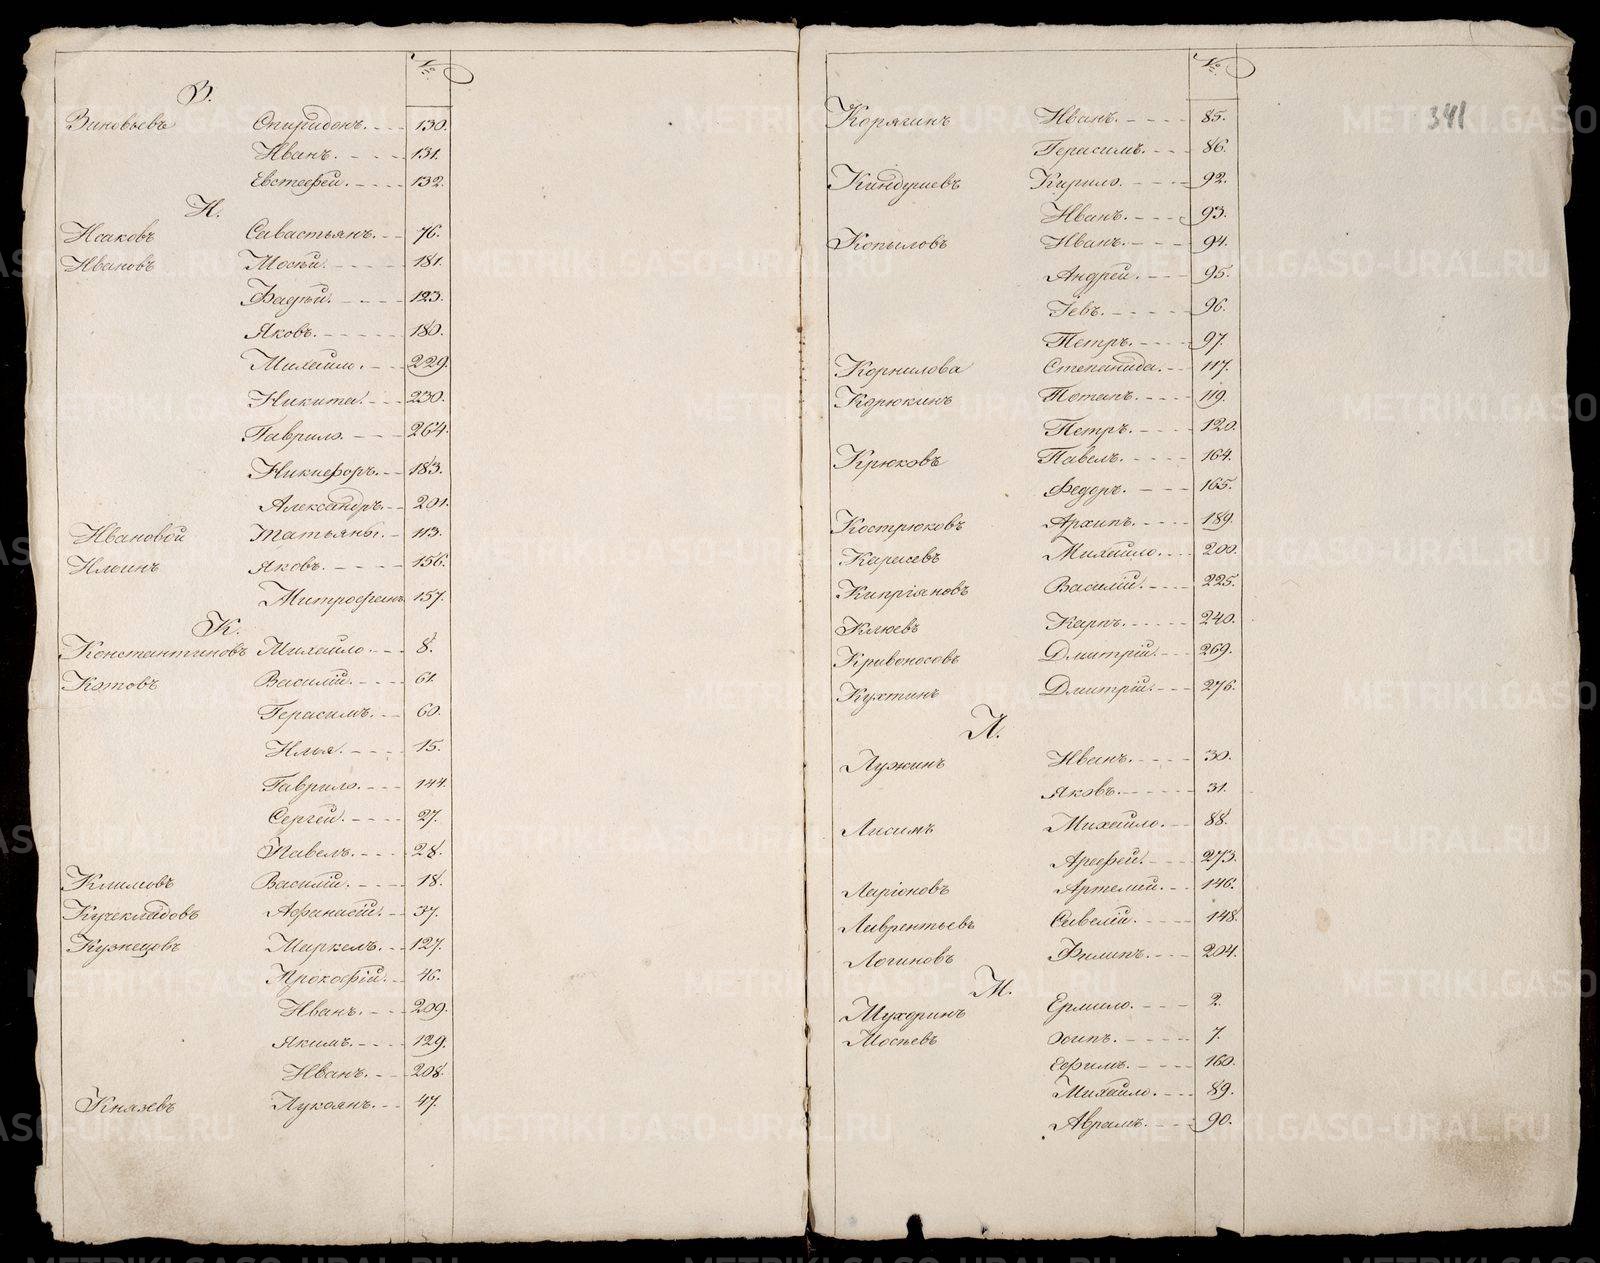 №
З.
Зиновьевъ Спиридонъ. 130.
Иванъ. 131.
Евстефей. 132.
И.
Исаковъ Савастьянъ. 76.
Ивановъ Мосѣй. 181.
Фадѣй. 123.
Яковъ. 180.
Михайло. 229.
Никита. 230.
Гаврило. 264.
Никифоръ. 183.
Александръ. 201.
Ивановой Татьяны. 113.
Ильинъ Яковъ. 156.
Митрофанъ 157.
К.
Константиновъ Михайло. 8.
Котовъ Василій. 61.
Герасимъ. 60.
Илья. 15.
Гаврило. 144.
Сергей. 27.
Павелъ. 28.
Климовъ Василій. 18.
Кучекладовъ Афанасій. 37.
Кузнецовъ Маркелъ. 127.
Прокофій. 46.
Иванъ. 209.
Якимъ. 129.
Иванъ. 208.
Князевъ Лукоянъ. 47.
№
341
Корягинъ Иванъ. 85.
Герасимъ. 86.
Киндушевъ Кирило. 92.
Иванъ. 93.
Копыловъ Иванъ. 94.
Андрей. 95.
Іевъ. 96.
Петръ. 97.
Корнилова Степанида. 117.
Корюкинъ Потапъ. 119.
Петръ. 120.
Крюковъ Павелъ. 164.
Федоръ. 165.
Кострюковъ Архипъ. 189.
Карасевъ Михайло. 200.
Кипріяновъ Василій. 225.
Клюевъ Карпъ. 240.
Кривоносовъ Дмитрій. 269.
Кухтинъ Дмитрій. 276.
Л.
Лужинъ Иванъ. 30.
Яковъ. 31.
Лисинъ Михайло. 88.
Арефей. 273.
Ларіоновъ Артемій. 146.
Лаврентьевъ Савелій. 148.
Логиновъ Филипъ. 204.
М.
Мухоринъ Ермило. 2.
Мосѣевъ Осипъ. 7.
Ефимъ. 160.
Михайло. 89.
Аврамъ. 90.
METRIKI.GASO-URAL.RU